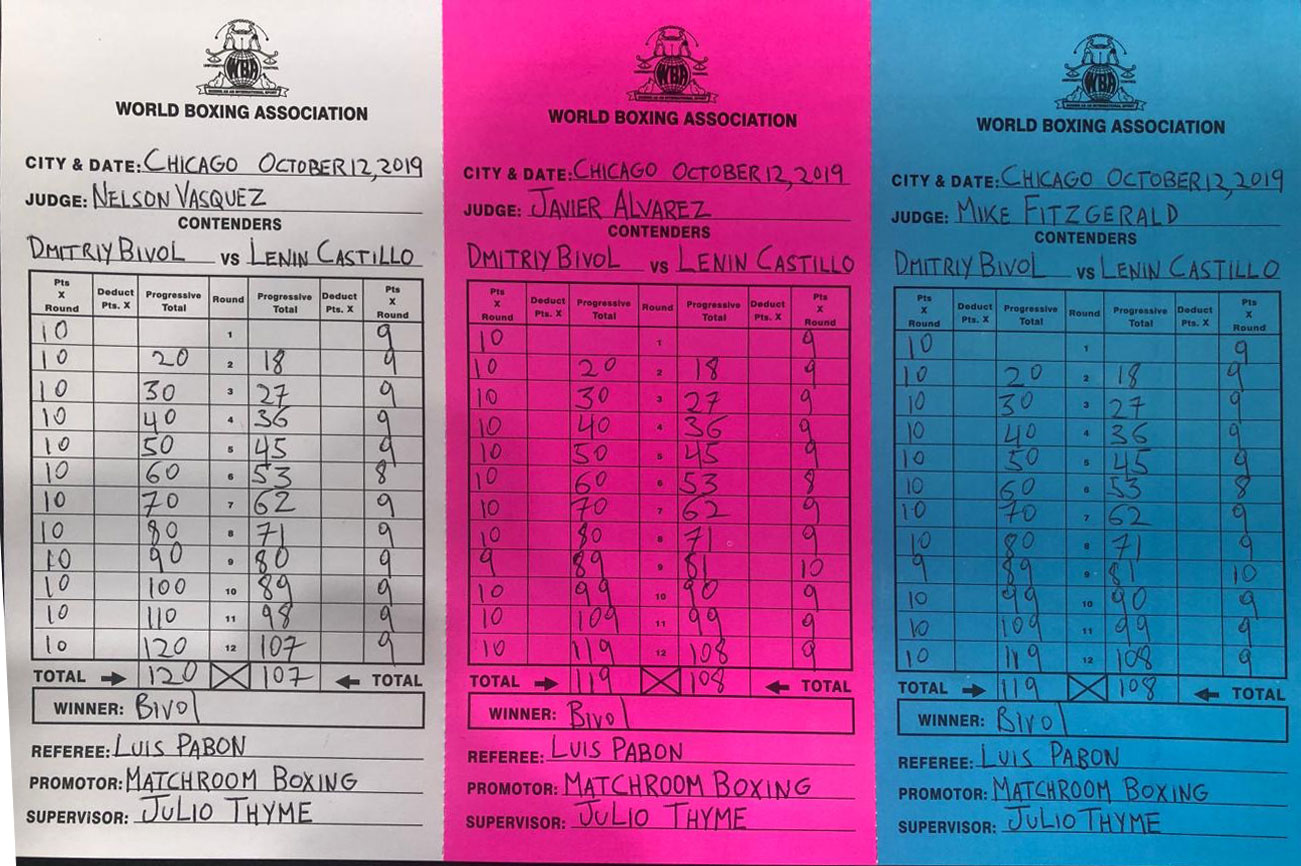 WBA
WORLD BOXING ASSOCIATION
CITY & DATE: CHICAGO OCTOBER 12, 2019
JUDGE: NELSON VASQUEZ
CONTENDERS
DMITRIY BIVOL VS LENIN CASTILLO
Pts X Round Deduct Pts. X Progressive Total Round Progressive Total Deduct Pts. X Pts X Round
10 1 9
10 20 2 18 9
10 30 3 27 9
10 40 4 36 9
10 50 5 45 9
10 60 6 53 8
10 70 7 62 9
10 80 8 71 9
10 90 9 80 9
10 100 10 89 9
10 110 11 98 9
10 120 12 107 9
TOTAL 120 107 TOTAL
WINNER: BIVOL
REFEREE: LUIS PABON
PROMOTOR: MATCHROOM BOXING
SUPERVISOR: JULIO THYME
WBA
WORLD BOXING ASSOCIATION
CITY & DATE: CHICAGO OCTOBER 12, 2019
JUDGE: JAVIER ALVAREZ
CONTENDERS
DMITRIY BIVOL VS LENIN CASTILLO
Pts X Round Deduct Pts. X Progressive Total Round Progressive Total Deduct Pts. X Pts X Round
10 1 9
10 20 2 18 9
10 30 3 27 9
10 40 4 36 9
10 50 5 45 9
10 60 6 53 8
10 70 7 62 9
10 80 8 71 9
9 89 9 81 10
10 99 10 90 9
10 109 11 99 9
10 119 12 108 9
TOTAL 119 108 TOTAL
WINNER: BIVOL
REFEREE: LUIS PABON
PROMOTOR: MATCHROOM BOXING
SUPERVISOR: JULIO THYME
WBA
WORLD BOXING ASSOCIATION
CITY & DATE: CHICAGO OCTOBER 12, 2019
JUDGE: MIKE FITZGERALD
CONTENDERS
DMITRIY BIVOL VS LENIN CASTILLO
Pts X Round Deduct Pts. X Progressive Total Round Progressive Total Deduct Pts. X Pts X Round
10 1 9
10 20 2 18 9
10 30 3 27 9
10 40 4 36 9
10 50 5 45 9
10 60 6 53 8
10 70 7 62 9
10 80 8 71 9
9 89 9 81 10
10 99 10 90 9
10 109 11 99 9
10 119 12 108 9
TOTAL 119 108 TOTAL
WINNER: BIVOL
REFEREE: LUIS PABON
PROMOTOR: MATCHROOM BOXING
SUPERVISOR: JULIO THYME